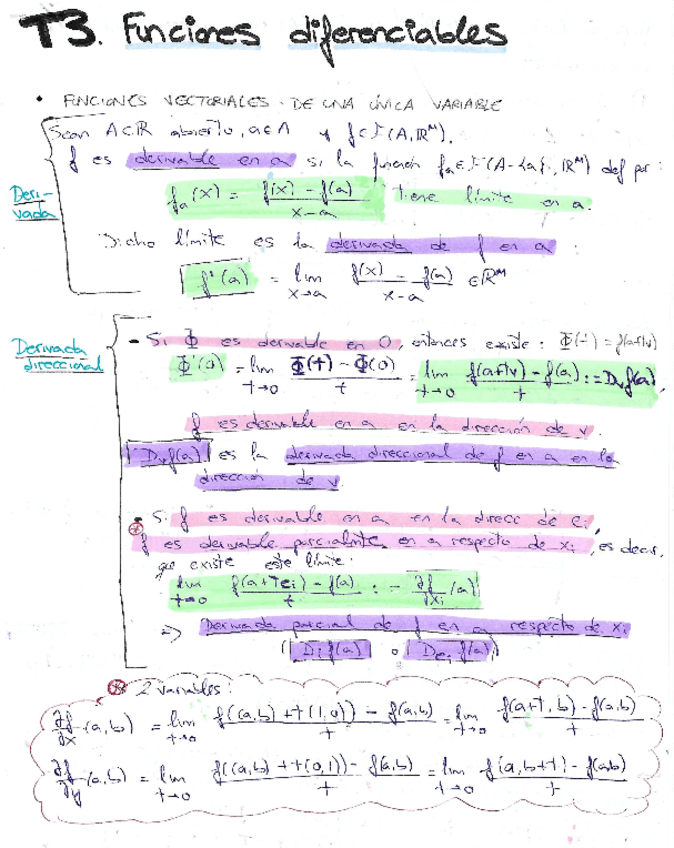 T3. Funciones diferenciables
• FUNCIONES VECTORIALES DE UNA ÚNICA VARIABLE
Sean A⊂R abierto, a∈A y f∈F(A,ℝᴹ).
f es derivable en a si la función fₐ∈F(A-{a}, ℝᴹ) def por:
Derivada
fₐ(x) = f(x) - f(a) / x - a tiene límite en a.
Dicho límite es la derivada de f en a:
f'(a) = lim x→a f(x) - f(a) / x - a ∈ℝᴹ
Derivada direccional
- Si Φ es derivable en 0, entonces existe: Φ(t) = f(a+tv)
Φ'(0) = lim t→0 Φ(t) - Φ(0) / t = lim t→0 f(a+tv) - f(a) / t := Dᵥf(a),
f es derivable en a en la dirección de v.
Dᵥf(a) es la derivada direccional de f en a en la
dirección de v.
• Si f es derivable en a en la direcc de eᵢ,
⊛ f es derivable parcialmte en a respecto de xᵢ, es decir,
que existe este límite:
lim t→0 f(a+teᵢ) - f(a) / t := ∂f/∂xᵢ (a)
=> Derivada parcial de f en a respecto de xᵢ
(Dᵢf(a) o D_eᵢ f(a))
⊛ 2 variables:
∂f/∂x (a,b) = lim t→0 f((a,b) + t(1,0)) - f(a,b) / t = lim t→0 f(a+t, b) - f(a,b) / t
∂f/∂y (a,b) = lim t→0 f((a,b) + t(0,1)) - f(a,b) / t = lim t→0 f(a,b+t) - f(a,b) / t